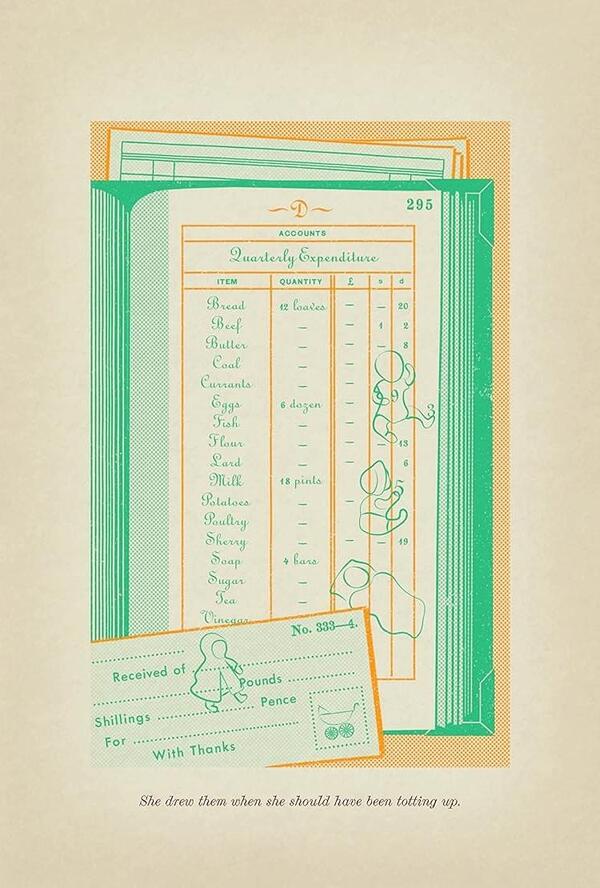 D
295
ACCOUNTS
Quarterly Expenditure
ITEM QUANTITY £ s d
Bread 12 loaves — — 20
Beef — — 1 2
Butter — — — 8
Coal — —
Currants — —
Eggs 6 dozen — 3
Fish — —
Flour — — 13
Lard — — 6
Milk 18 pints — 5
Potatoes — —
Poultry — —
Sherry — — — 19
Soap 4 bars
Sugar —
Tea —
Vinegar —
No. 333—4.
Received of
Pounds
Shillings Pence
For
With Thanks
She drew them when she should have been totting up.